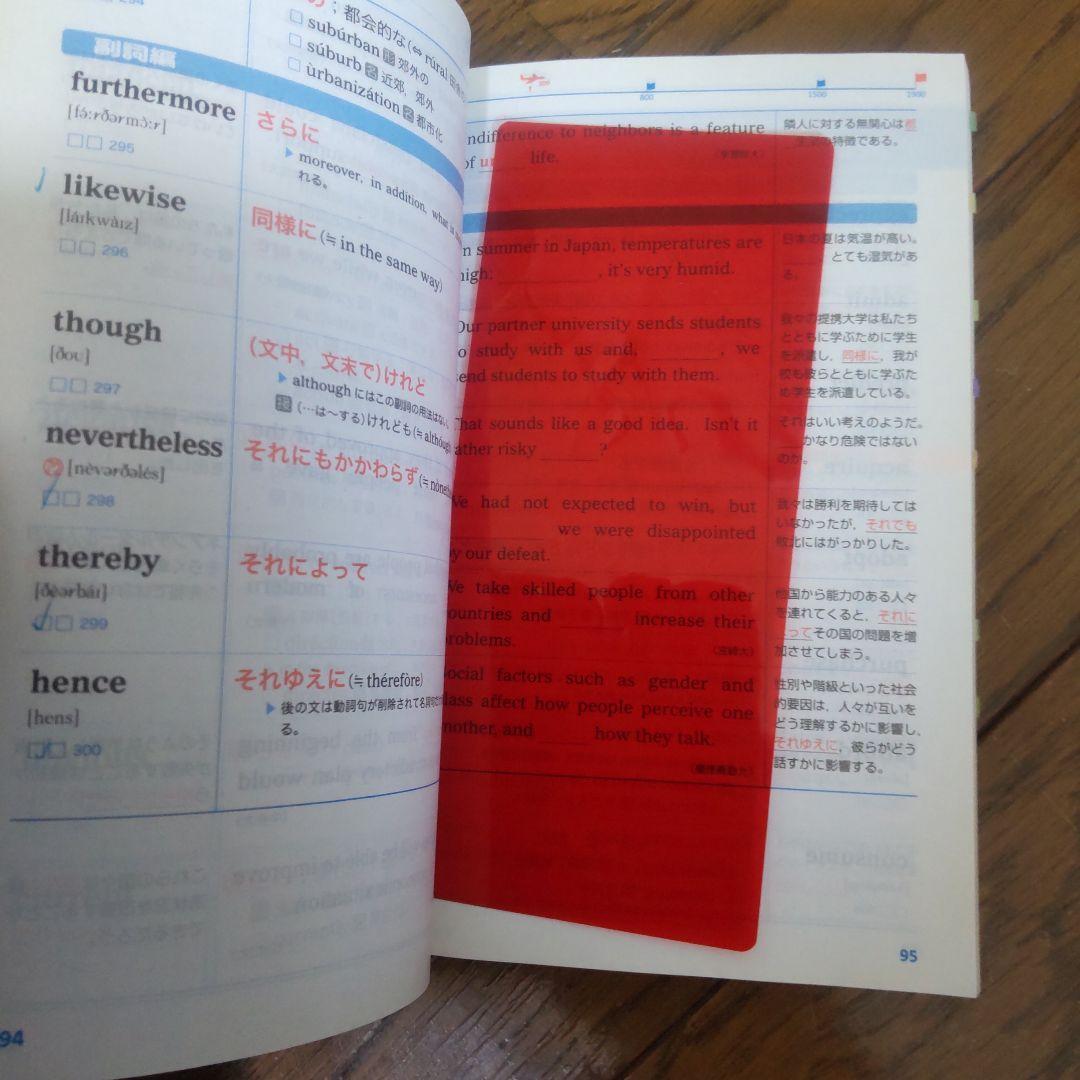 294
；都会的な(⇔ rúral 田
□ subúrban 形 郊外の
□ súburb 名 近郊，郊外
□ ùrbanizátion 名 都市化
副詞編
furthermore
[fə́ːrðərmɔ̀ːr]
□□ 295
さらに
▶ moreover, in addition,
れる。
likewise
[láɪkwàɪz]
□□ 296
同様に(≒ in the same way)
though
[ðoʊ]
□□ 297
(文中，文末で)けれど
▶ although にはこの副詞の用法はない。
接 (…は〜する)けれども(≒
nevertheless
[nèvərðəlés]
□□ 298
それにもかかわらず(≒
thereby
[ðèərbáɪ]
□□ 299
それによって
hence
[hens]
□□ 300
それゆえに(≒ thérefòre)
▶ 後の文は動詞句が削除されて名詞句
る。
94
800 1500 1900
ndifference to neighbors is a feature
of ur life.
隣人に対する無関心は都
の特徴である。
n summer in Japan, temperatures are
high; , it's very humid.
日本の夏は気温が高い。
とても湿気があ
る。
Our partner university sends students
to study with us and, , we
send students to study with them.
我々の提携大学は私たち
とともに学ぶために学生
を派遣し，同様に，我が
校も彼らとともに学ぶた
め学生を派遣している。
That sounds like a good idea. Isn't it
rather risky ?
それはいい考えのようだ。
かなり危険ではない
のか。
We had not expected to win, but
we were disappointed
by our defeat.
我々は勝利を期待しては
いなかったが，それでも
敗北にはがっかりした。
We take skilled people from other
countries and increase their
problems.
(宮崎大)
他国から能力のある人々
を連れてくると，それに
よってその国の問題を増
加させてしまう。
Social factors such as gender and
class affect how people perceive one
another, and how they talk.
性別や階級といった社会
的要因は，人々が互いを
どう理解するかに影響し，
それゆえに，彼らがどう
話すかに影響する。
95